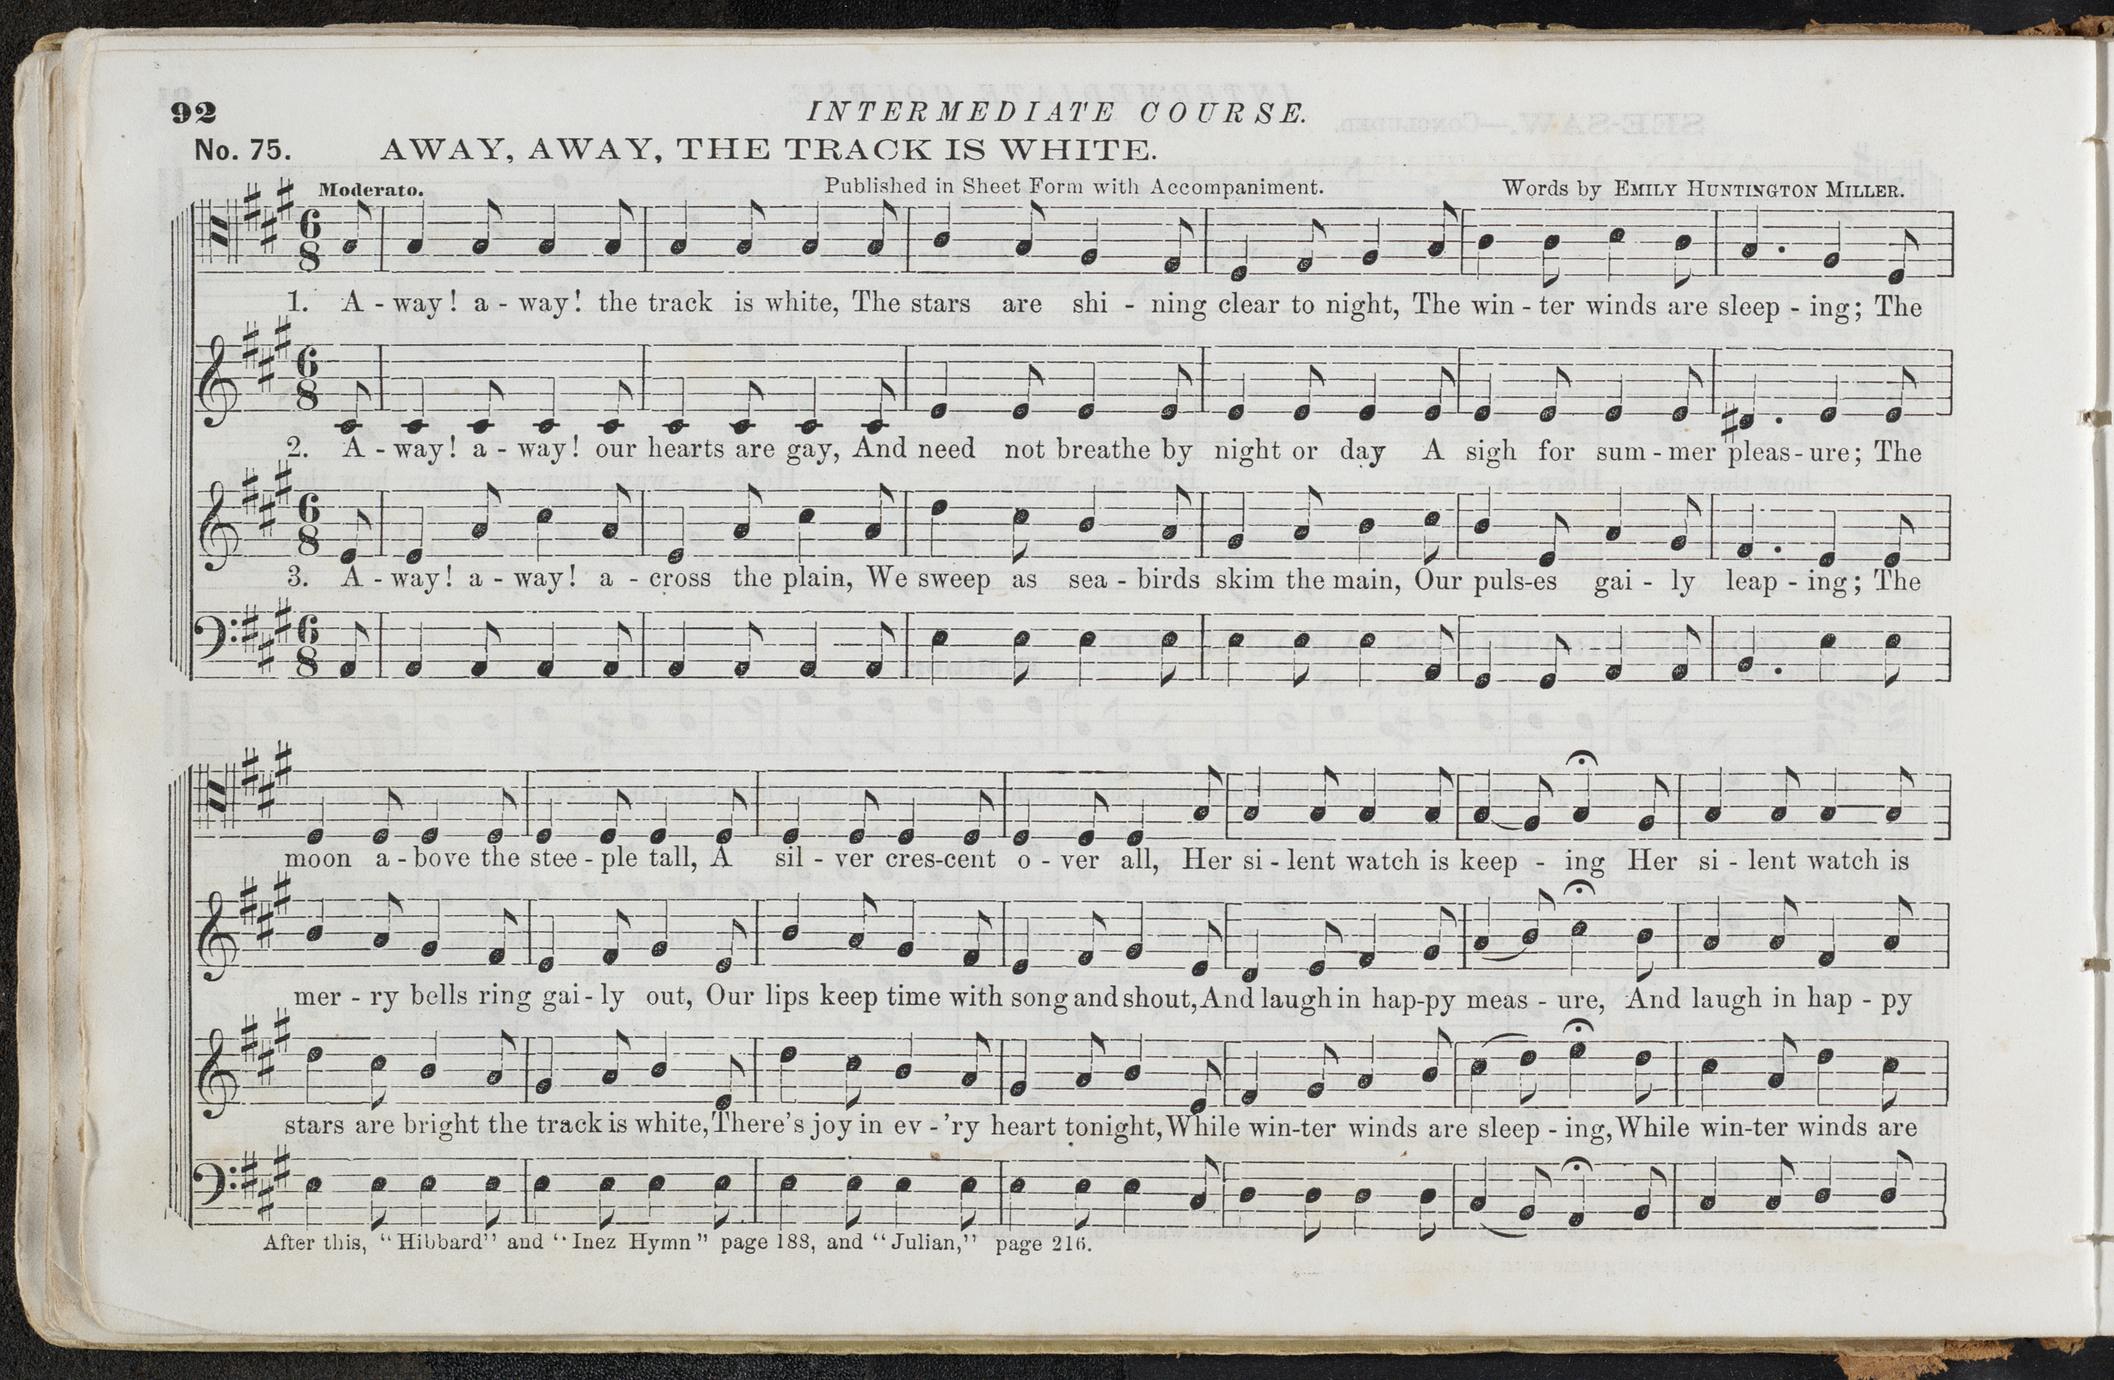 92
INTERMEDIATE COURSE.
No. 75. AWAY, AWAY, THE TRACK IS WHITE.
Moderato. Published in Sheet Form with Accompaniment. Words by EMILY HUNTINGTON MILLER.
6
8
1. A - way! a - way! the track is white, The stars are shi - ning clear to night, The win - ter winds are sleep - ing; The
6
8
2. A - way! a - way! our hearts are gay, And need not breathe by night or day A sigh for sum - mer pleas - ure; The
6
8
3. A - way! a - way! a - cross the plain, We sweep as sea - birds skim the main, Our puls-es gai - ly leap - ing; The
6
8
moon a - bove the stee - ple tall, A sil - ver cres-cent o - ver all, Her si - lent watch is keep - ing Her si - lent watch is
mer - ry bells ring gai - ly out, Our lips keep time with song and shout, And laugh in hap-py meas - ure, And laugh in hap - py
stars are bright the track is white, There's joy in ev - 'ry heart tonight, While win-ter winds are sleep - ing, While win-ter winds are
After this, "Hibbard" and "Inez Hymn" page 188, and "Julian," page 216.